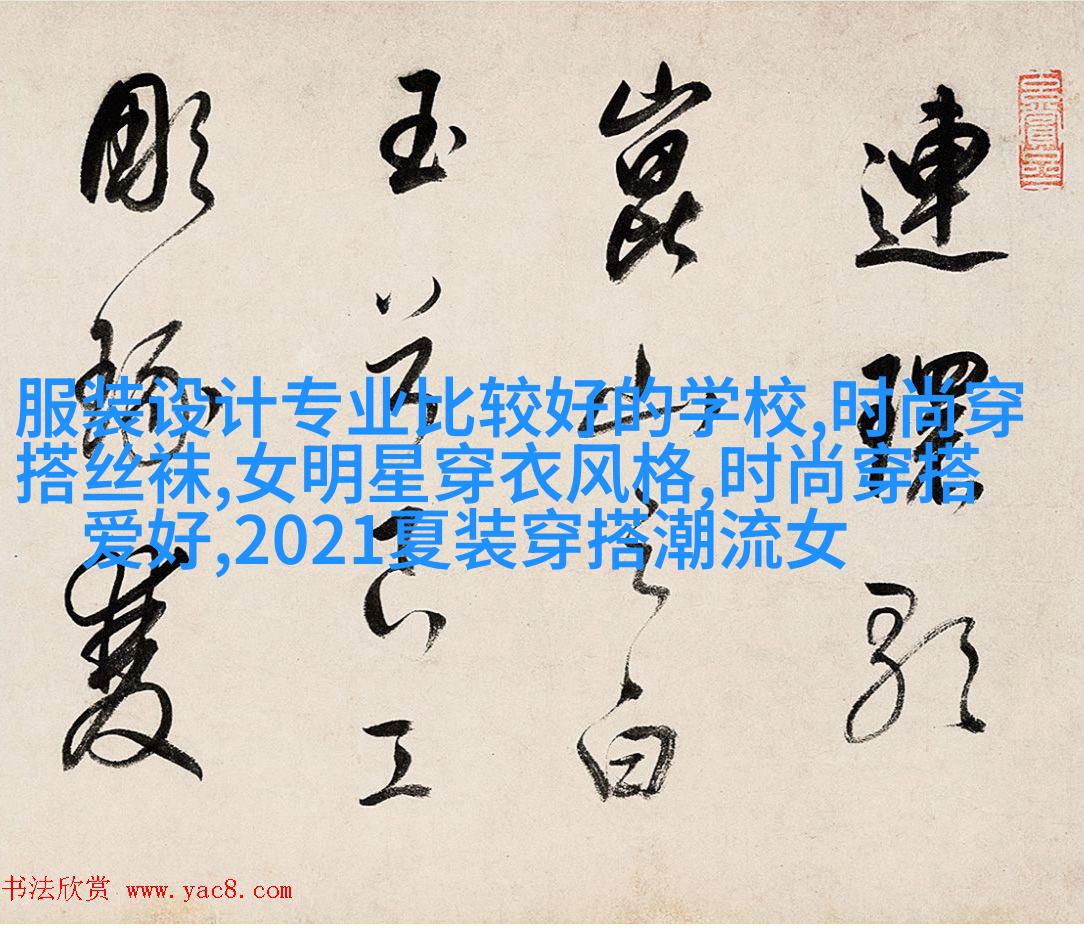 連歌
崑山之白
玉兮工
彫琢
服装设计专业比较好的学校,时尚穿
搭丝袜,女明星穿衣风格,时尚穿搭
爱好,2021夏装穿搭潮流女
书法欣赏 www.yac8.com